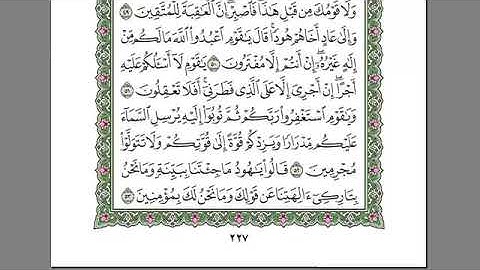 وَلَا قَوْمُكَ مِن قَبْلِ هَٰذَا فَاصْبِرْ إِنَّ الْعَاقِبَةَ لِلْمُتَّقِينَ ٤٩
وَإِلَىٰ عَادٍ أَخَاهُمْ هُودًا قَالَ يَاقَوْمِ اعْبُدُوا اللَّهَ مَا لَكُم مِّنْ
إِلَٰهٍ غَيْرُهُ إِنْ أَنتُمْ إِلَّا مُفْتَرُونَ ٥٠ يَاقَوْمِ لَا أَسْأَلُكُمْ عَلَيْهِ
أَجْرًا إِنْ أَجْرِيَ إِلَّا عَلَى الَّذِي فَطَرَنِي أَفَلَا تَعْقِلُونَ ٥١
وَيَاقَوْمِ اسْتَغْفِرُوا رَبَّكُمْ ثُمَّ تُوبُوا إِلَيْهِ يُرْسِلِ السَّمَاءَ
عَلَيْكُم مِّدْرَارًا وَيَزِدْكُمْ قُوَّةً إِلَىٰ قُوَّتِكُمْ وَلَا تَتَوَلَّوْا
مُجْرِمِينَ ٥٢ قَالُوا يَاهُودُ مَا جِئْتَنَا بِبَيِّنَةٍ وَمَا نَحْنُ
بِتَارِكِي آلِهَتِنَا عَن قَوْلِكَ وَمَا نَحْنُ لَكَ بِمُؤْمِنِينَ ٥٣
٢٢٧